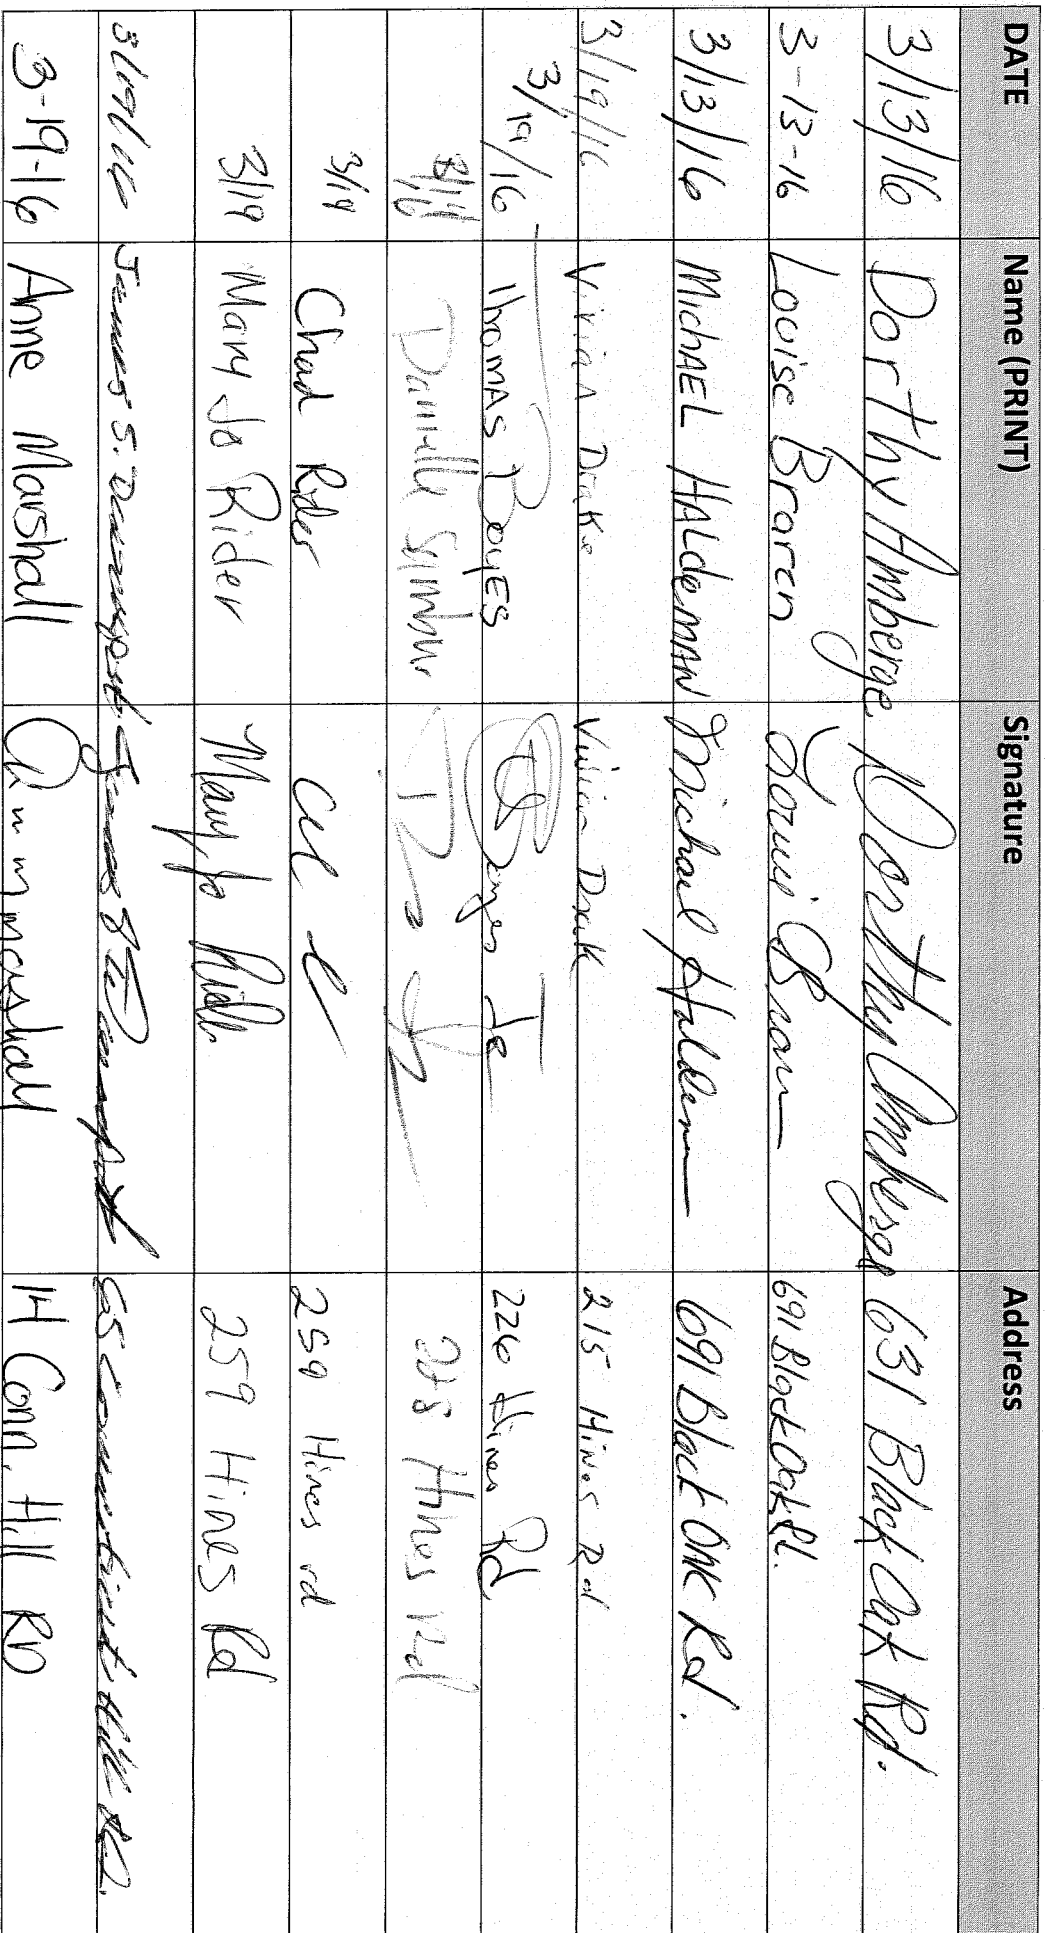 DATE Name (PRINT) Signature Address
3/13/16 Dorthy Amberge Dorthy Amberge 631 Black Oak Rd.
3-13-16 Louise Braren Louise Braren 691 Black Oak Rd.
3/13/16 MichAEL HALdemAN Michael Haldeman 691 Black OAK Rd.
3/19/16 Vivian Drake Vivian Drake 215 Hines Rd
3/19/16 ThomAS BoyES 226 Hines Rd
Danielle Hines Rd
3/19 Chad Rider 259 Hines rd
3/19 Mary Jo Rider Mary Jo Rider 259 Hines Rd
3/19/16 James S. James S 65 Connecticut Hill RD.
3-19-16 Anne Marshall Ann m marshall 14 Conn. Hill RD